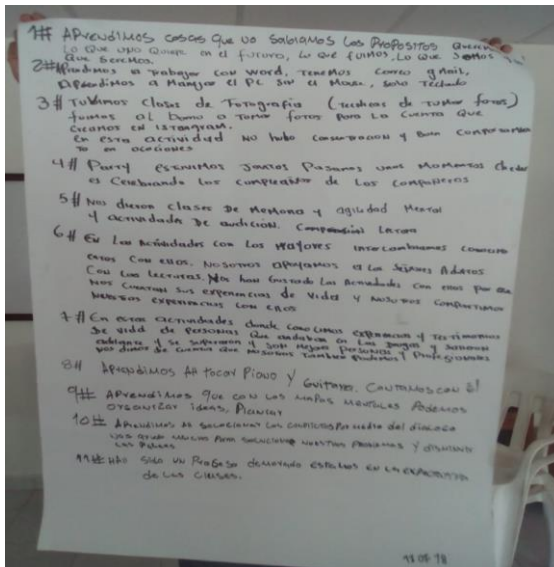 1# APrendimos cosas que no sabiamos Los PROPOSITOS Queren
Lo Que uno Quiere en el Futuro, Lo Que fuimos, Lo Que Somos
Que Seremos.
2# APrendimos a Trabajar con word, Tenemos Correo gmail,
Aprendimos a Manejar el PC Sin el Mouse, Solo Teclado
3# Tubimos clases de Fotografia (Tecnicas de Tomar fotos)
fuimos al barrio a Tomar fotos Para La Cuenta Que
Creamos en Istangram.
en esta actividad No hubo Concentracion y Buen comportamien
to en ocasiones
4# Party estuvimos Juntos Pasamos unos Momentos Chever
es Celebrando Los cumpleaños de Los Compañeros
5# Nos dieron clases De Memoria y agilidad Mental
y actividade De audicion. Comprension Lectora
6# En Las Actividades con Los Mayores intercambiamos conocimi
entos Con ellos. Nosotros apoyamos a Los Señores Adultos
Con Las Lecturas. Nos han Gustado Las Actividades con ellos por que
Nos Cuentan Sus experiencias de Vida y Nosotros Compartimos
Nuestras experiencias con ellos
7# En estas actividades donde conocimos experiencias y Testimonios
De vida de personas Que andaban en Las Drogas y
y se superaron y son Mejor Personas
Nos dimos de Cuenta Que Nosotros Tambien Podemos y Profesionales
8# APrendimos AH tocar Piano Y Guitarra. CONTAMOS CON 2!
9# APrendimos Que con Los MaPas MentaLes Podemos
organizar ideas, PLaniar
10# APrendimos AH Solucionar Los conflictos Por medio del dialogo
nos Para Solucionar nuestros Problemas Y
Las Peleas
11# HAO Sido un Proceso demorado estamos en La expectativa
de Las Clases.